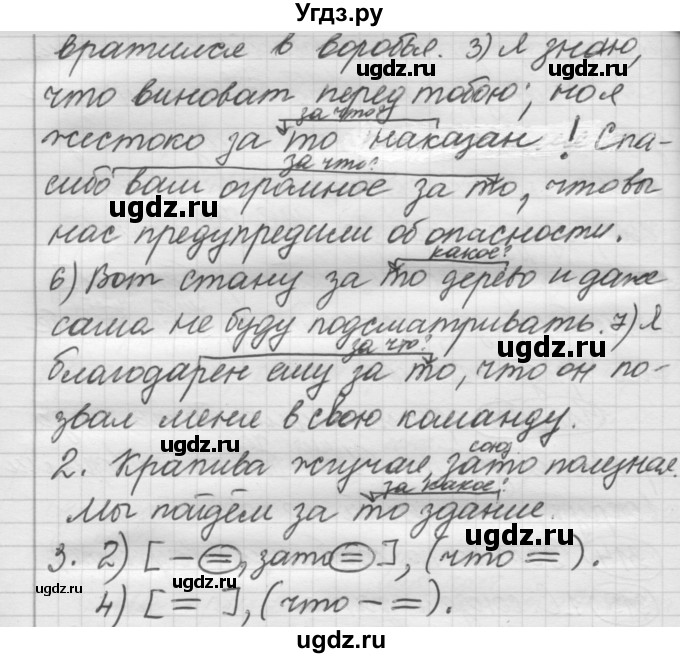 Угдз.ру
вратился в воробья. 3) Я знаю,
ugdz.ru ugdz.ru
что виноват перед тобою, но я
за что?
жестоко за то наказан! Спа-
за что?
сибо вам огромное за то, что вы
ugdz.ru
нас предупредили об опасности.
какое?
6) Вот стану за то дерево и даже
сама не буду подсматривать. 7) Я
ugdz.ru
за что?
благодарен ему за то, что он по-
звал меня в свою команду.
ugdz.ru
союз
2. Крапива жгучая, зато полезная.
за какое?
Мы пойдём за то здание.
3. 2) [ - =, зато = ], (что = ).
ugdz.ru ugdz.ru
4) [ = ], (что - = ).
ugdz.ru